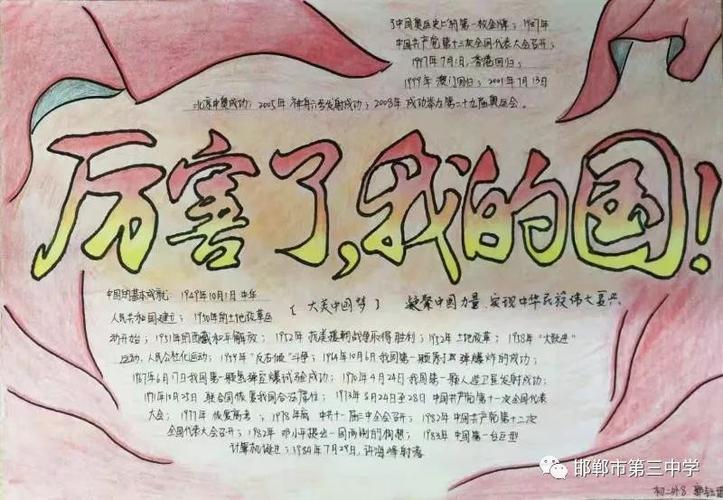 了中国奥运史上的第一枚金牌；1987年
中国共产党第十三次全国代表大会召开；
1997年7月1日，香港回归；
1999年 澳门回归；2001年7月13日
北京申奥成功；2005年 神舟六号发射成功；2008年 成功举办第二十九届奥运会。
厉害了，我的国！
中国的基本成就：1949年10月1日 中华
【大美中国梦】 凝聚中国力量 实现中华民族伟大复兴
人民共和国建立；1950年的土地改革运
动开始；1951年的西藏和平解放；1952年 抗美援朝战争取得胜利；1952年土地改革；1958年 “大跃进”
运动、人民公社化运动；1959年“反右倾”斗争；1964年10月6日我国第一颗原子弹爆炸的成功；
1967年6月17日我国第一颗氢弹空爆试验成功；1970年4月24日我国第一颗人造卫星发射成功；
1971年10月25日 联合国恢复我国合法席位；1973年8月24日至28日 中国共产党第十一次全国代表
大会；1977年 恢复高考；1978年底 中共十一届三中全会召开；1982年 中国共产党第十二次
全国代表大会召开；1982年 邓小平提出一国两制的构想；1983年 中国第一台巨型
计算机诞生；1984年7月29日，许海峰射落
邯郸市第三中学
初二外8